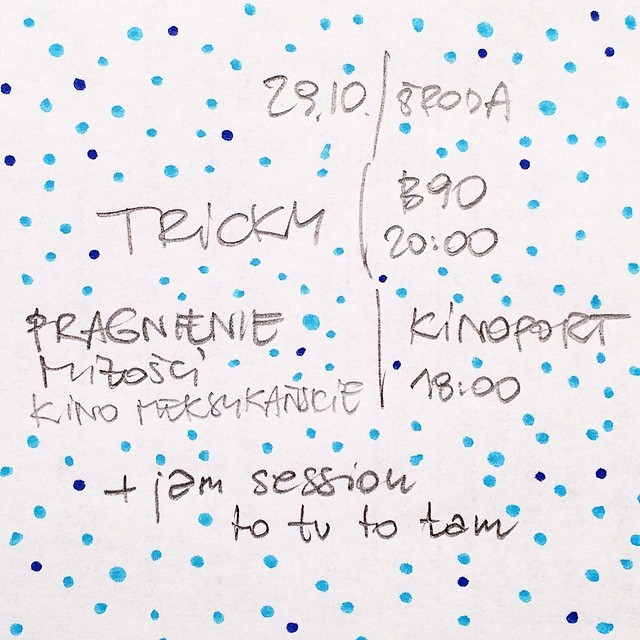 29.10. / ŚRODA
TRICKY | B90
20:00
PRAGNIENIE | KINOPORT
MIŁOŚCI 18:00
KINO MEKSYKAŃSKIE
+ jam session
to tu to tam